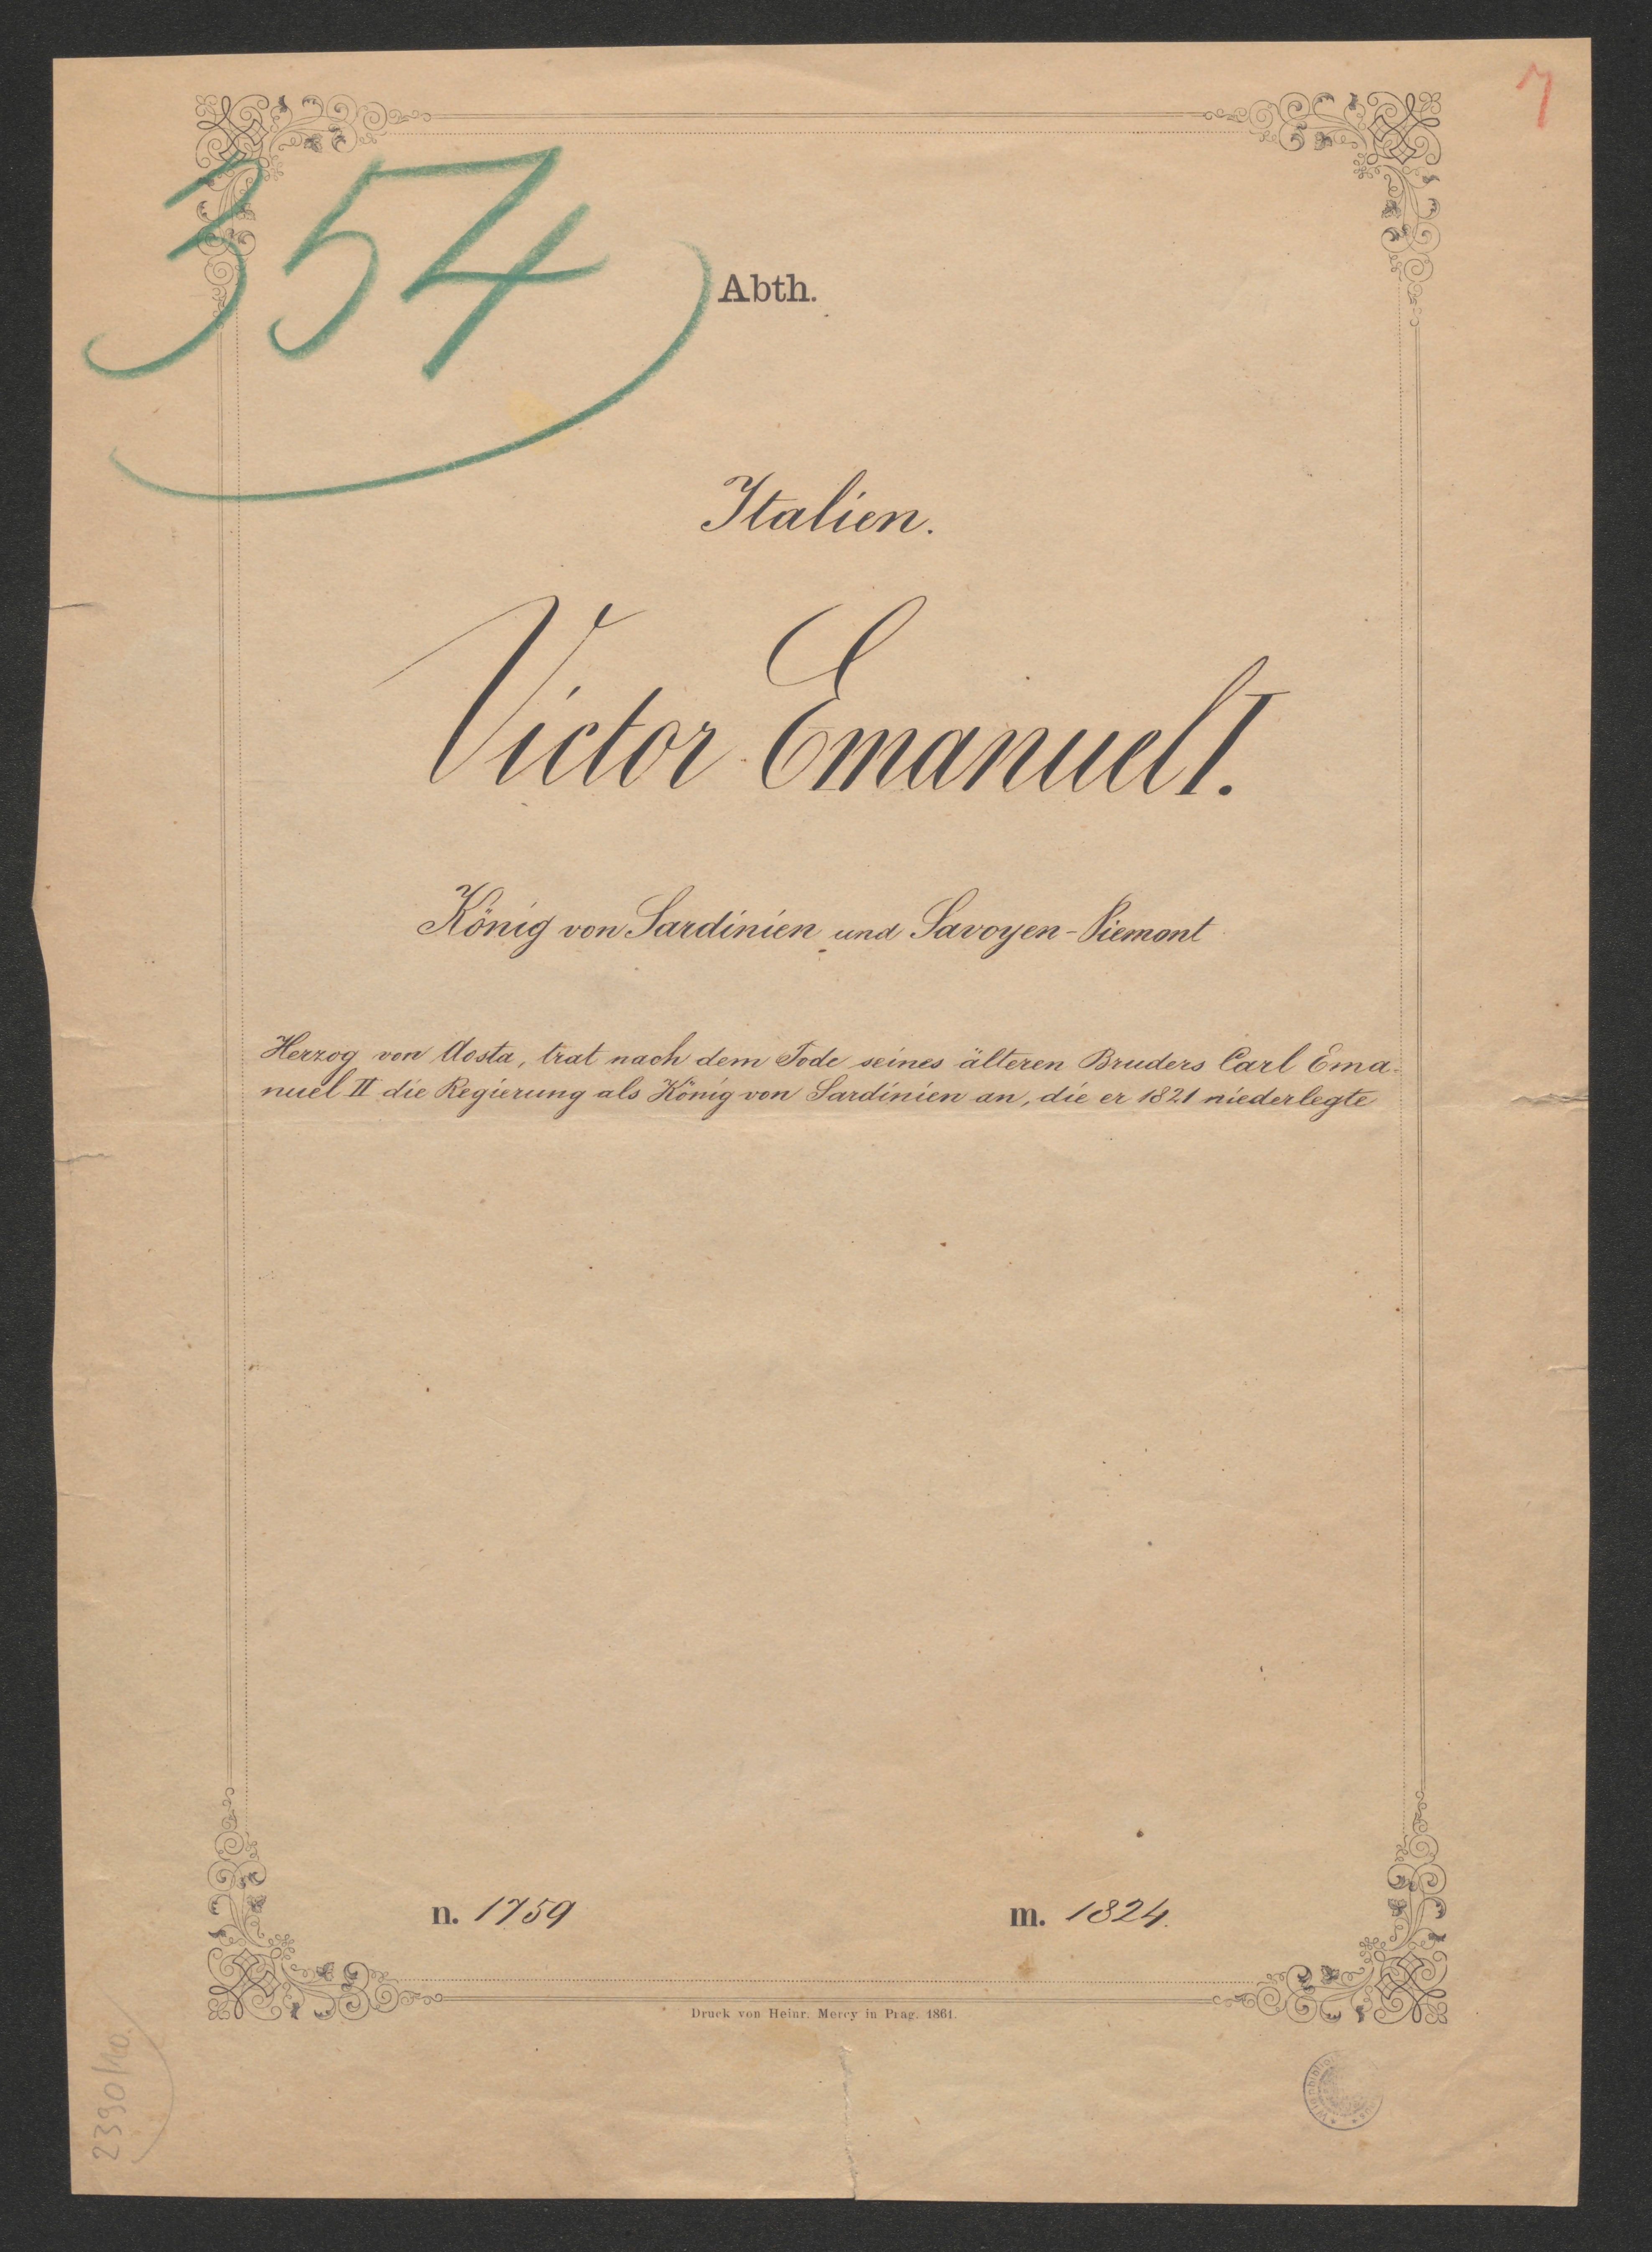 7
354
Abth.
Italien.
Victor Emanuel I.
König von Sardinien und Savoyen-Piemont
Herzog von Aosta, trat nach dem Tode seines älteren Bruders Carl Ema-
nuel II die Regierung als König von Sardinien an, die er 1821 niederlegte
n. 1759
m. 1824.
Druck von Heinr. Mercy in Prag. 1861.
2390/40